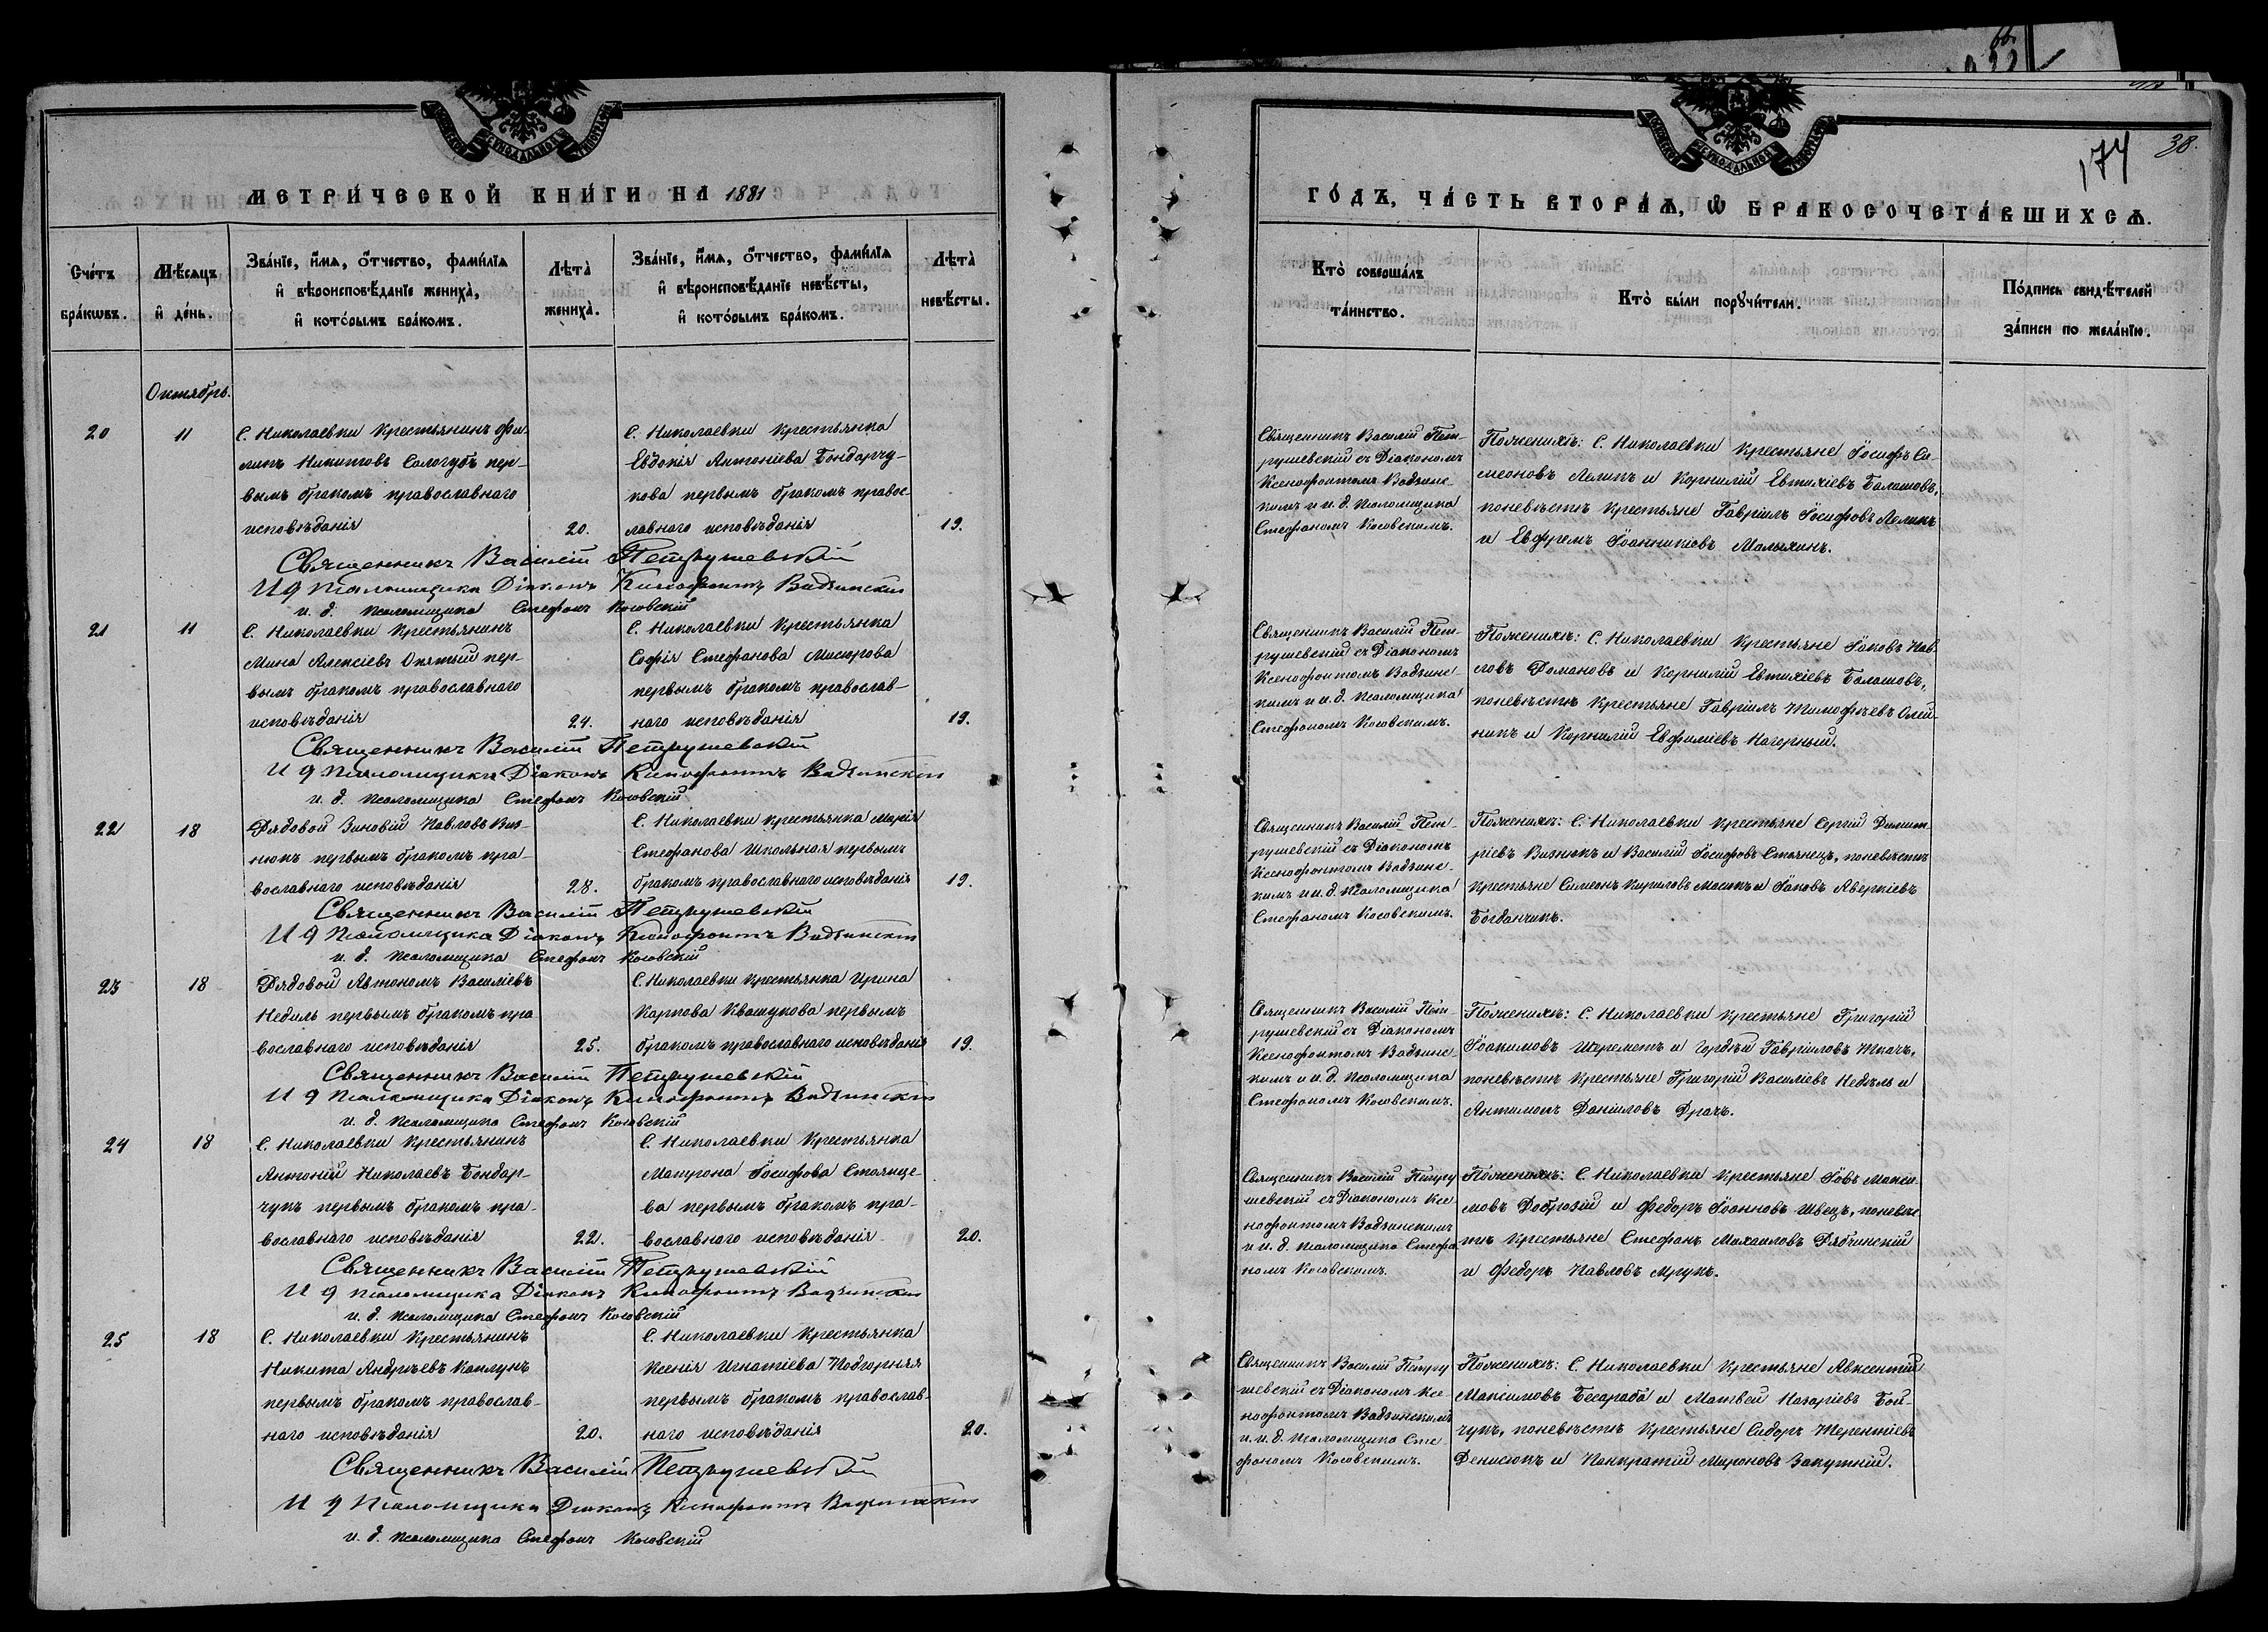 66.
174
38.
МЕТРИ́ЧЕСКОЙ КНИ́ГИ НА 1881
ГО́ДЪ, ЧА́СТЬ ВТОРА́Ѧ, Ѡ БРАКОСОЧЕТА́ВШИХСѦ.
Сче́тъ бра́кѡвъ.
Мѣ́сяцъ и де́нь.
Зва́нїе, и́мя, о́тчество, фами́лїя
и вѣроисповѣ́данїе жениха̀,
и кото́рымъ бра́комъ.
Лѣта̀ жениха̀.
Зва́нїе, и́мя, о́тчество, фами́лїя
и вѣроисповѣ́данїе невѣ́сты,
и кото́рымъ бра́комъ.
Лѣта̀ невѣ́сты.
Кто̀ соверша́лъ
та́инство.
Кто̀ бы́ли порꙋчи́тели.
По́дпись свидѣ́телей
за́писи по жела́нїю.
Октябрь.
20
11
С. Николаевки крестьянинъ Фи-
липъ Никитовъ Сологубъ пер-
вымъ бракомъ православнаго
исповѣданія
20.
С. Николаевки крестьянка
Евдокія Антоніева Бондарчу-
кова первымъ бракомъ правос-
лавнаго исповѣданія
19.
Священникъ Василій Пет-
рушевскій съ Діакономъ
Ксенофонтомъ Вадзинс-
кимъ и и. д. Псаломщика
Стефаномъ Косовскимъ.
Поженихѣ: С. Николаевки крестьяне Іосифъ Си-
меоновъ Лелинъ и Корнилій Евтихіевъ Балашовъ,
поневѣстѣ крестьяне Гавріилъ Іосифовъ Лелинъ
и Евфремъ Іоанникіевъ Малыхинъ.
Священникъ Василій Петрушевскій
И д Псаломщика Діаконъ Ксенофонтъ Вадзинскій
и. д. Псаломщика Стефанъ Косовскій
21
11
С. Николаевки крестьянинъ
Мина Алексіевъ Опятый пер-
вымъ бракомъ православнаго
исповѣданія
24.
С. Николаевки крестьянка
Софія Стефанова Мисюрова
первымъ бракомъ православ-
наго исповѣданія
19.
Священникъ Василій Пет-
рушевскій съ Діакономъ
Ксенофонтомъ Вадзинс-
кимъ и и. д. Псаломщика
Стефаномъ Косовскимъ.
Поженихѣ: С. Николаевки крестьяне Іаковъ Пав-
ловъ Романовъ и Корнилій Евтихіевъ Балашовъ,
поневѣстѣ крестьяне Гавріилъ Тимофѣевъ Олей-
никъ и Корнилій Евфиміевъ Нагорный.
Священникъ Василій Петрушевскій
И д Псаломщика Діаконъ Ксенофонтъ Вадзинскій
и. д. Псаломщика Стефанъ Косовскій
22
18
Рядовой Зиновій Павловъ Виз-
нюкъ первымъ бракомъ пра-
вославнаго исповѣданія
28.
С. Николаевки крестьянка Марія
Стефанова Школьная первымъ
бракомъ православнаго исповѣданія
19.
Священникъ Василій Пет-
рушевскій съ Діакономъ
Ксенофонтомъ Вадзинс-
кимъ и и. д. Псаломщика
Стефаномъ Косовскимъ.
Поженихѣ: С. Николаевки крестьяне Сергій Димит-
ріевъ Визнюкъ и Василій Іосифовъ Стоянецъ, поневѣстѣ
крестьяне Симеонъ Кириловъ Мосинъ и Іаковъ Аверкіевъ
Богданчикъ.
Священникъ Василій Петрушевскій
И д Псаломщика Діаконъ Ксенофонтъ Вадзинскій
и. д. Псаломщика Стефанъ Косовскій
23
18
Рядовой Автономъ Василіевъ
Недиль первымъ бракомъ пра
вославнаго исповѣданія
25.
С. Николаевки крестьянка Ирина
Карпова Квашукова первымъ
бракомъ православнаго исповѣданія
19.
Священникъ Василій Пет-
рушевскій съ Діакономъ
Ксенофонтомъ Вадзинс-
кимъ и и. д. Псаломщика
Стефаномъ Косовскимъ.
Поженихѣ: С. Николаевки крестьяне Григорій
Іоакимовъ Шереметъ и Гордѣй Гавріиловъ Ткачъ,
поневѣстѣ крестьяне Григорій Василіевъ Недѣль и
Антимонъ Даніиловъ Драчъ.
Священникъ Василій Петрушевскій
И д Псаломщика Діаконъ Ксенофонтъ Вадзинскій
и. д. Псаломщика Стефанъ Косовскій
24
18
С. Николаевки крестьянинъ
Антоній Николаевъ Бондар-
чукъ первымъ бракомъ пра-
вославнаго исповѣданія
22.
С. Николаевки крестьянка
Матрона Іосифова Стоянце-
ва первымъ бракомъ пра-
вославнаго исповѣданія
20.
Священникъ Василій Петру
шевскій съ Діакономъ Ксе
нофонтомъ Вадзинскимъ
и и. д. Псаломщика Стефа
номъ Косовскимъ.
Поженихѣ: С. Николаевки крестьяне Іовъ Макси-
мовъ Доброзій и Федоръ Іоанновъ Швецъ, поневѣс
тѣ крестьяне Стефанъ Михаиловъ Рябчинскій
и Федоръ Павловъ Мрукъ.
Священникъ Василій Петрушевскій
И д Псаломщика Діаконъ Ксенофонтъ Вадзинскій
и. д. Псаломщика Стефанъ Косовскій
25
18
С. Николаевки крестьянинъ
Никита Андрѣевъ Каплунъ
первымъ бракомъ православ-
наго исповѣданія
20.
С. Николаевки крестьянка
Ксенія Игнатіева Подгорняя
первымъ бракомъ православ-
наго исповѣданія
20.
Священникъ Василій Петру
шевскій съ Діакономъ Ксе-
нофонтомъ Вадзинскимъ
и. и. д. Псаломщика Сте-
фаномъ Косовскимъ.
Поженихѣ: С. Николаевки крестьяне Авксентій
Максимовъ Бесараба и Матвей Назаріевъ Бой-
чукъ, поневѣстѣ крестьяне Сидоръ Терентіевъ
Денисюкъ и Панкратій Мироновъ Закутній.
Священникъ Василій Петрушевскій
И д Псаломщика Діаконъ Ксенофонтъ Вадзинскій
и. д. Псаломщика Стефанъ Косовскій